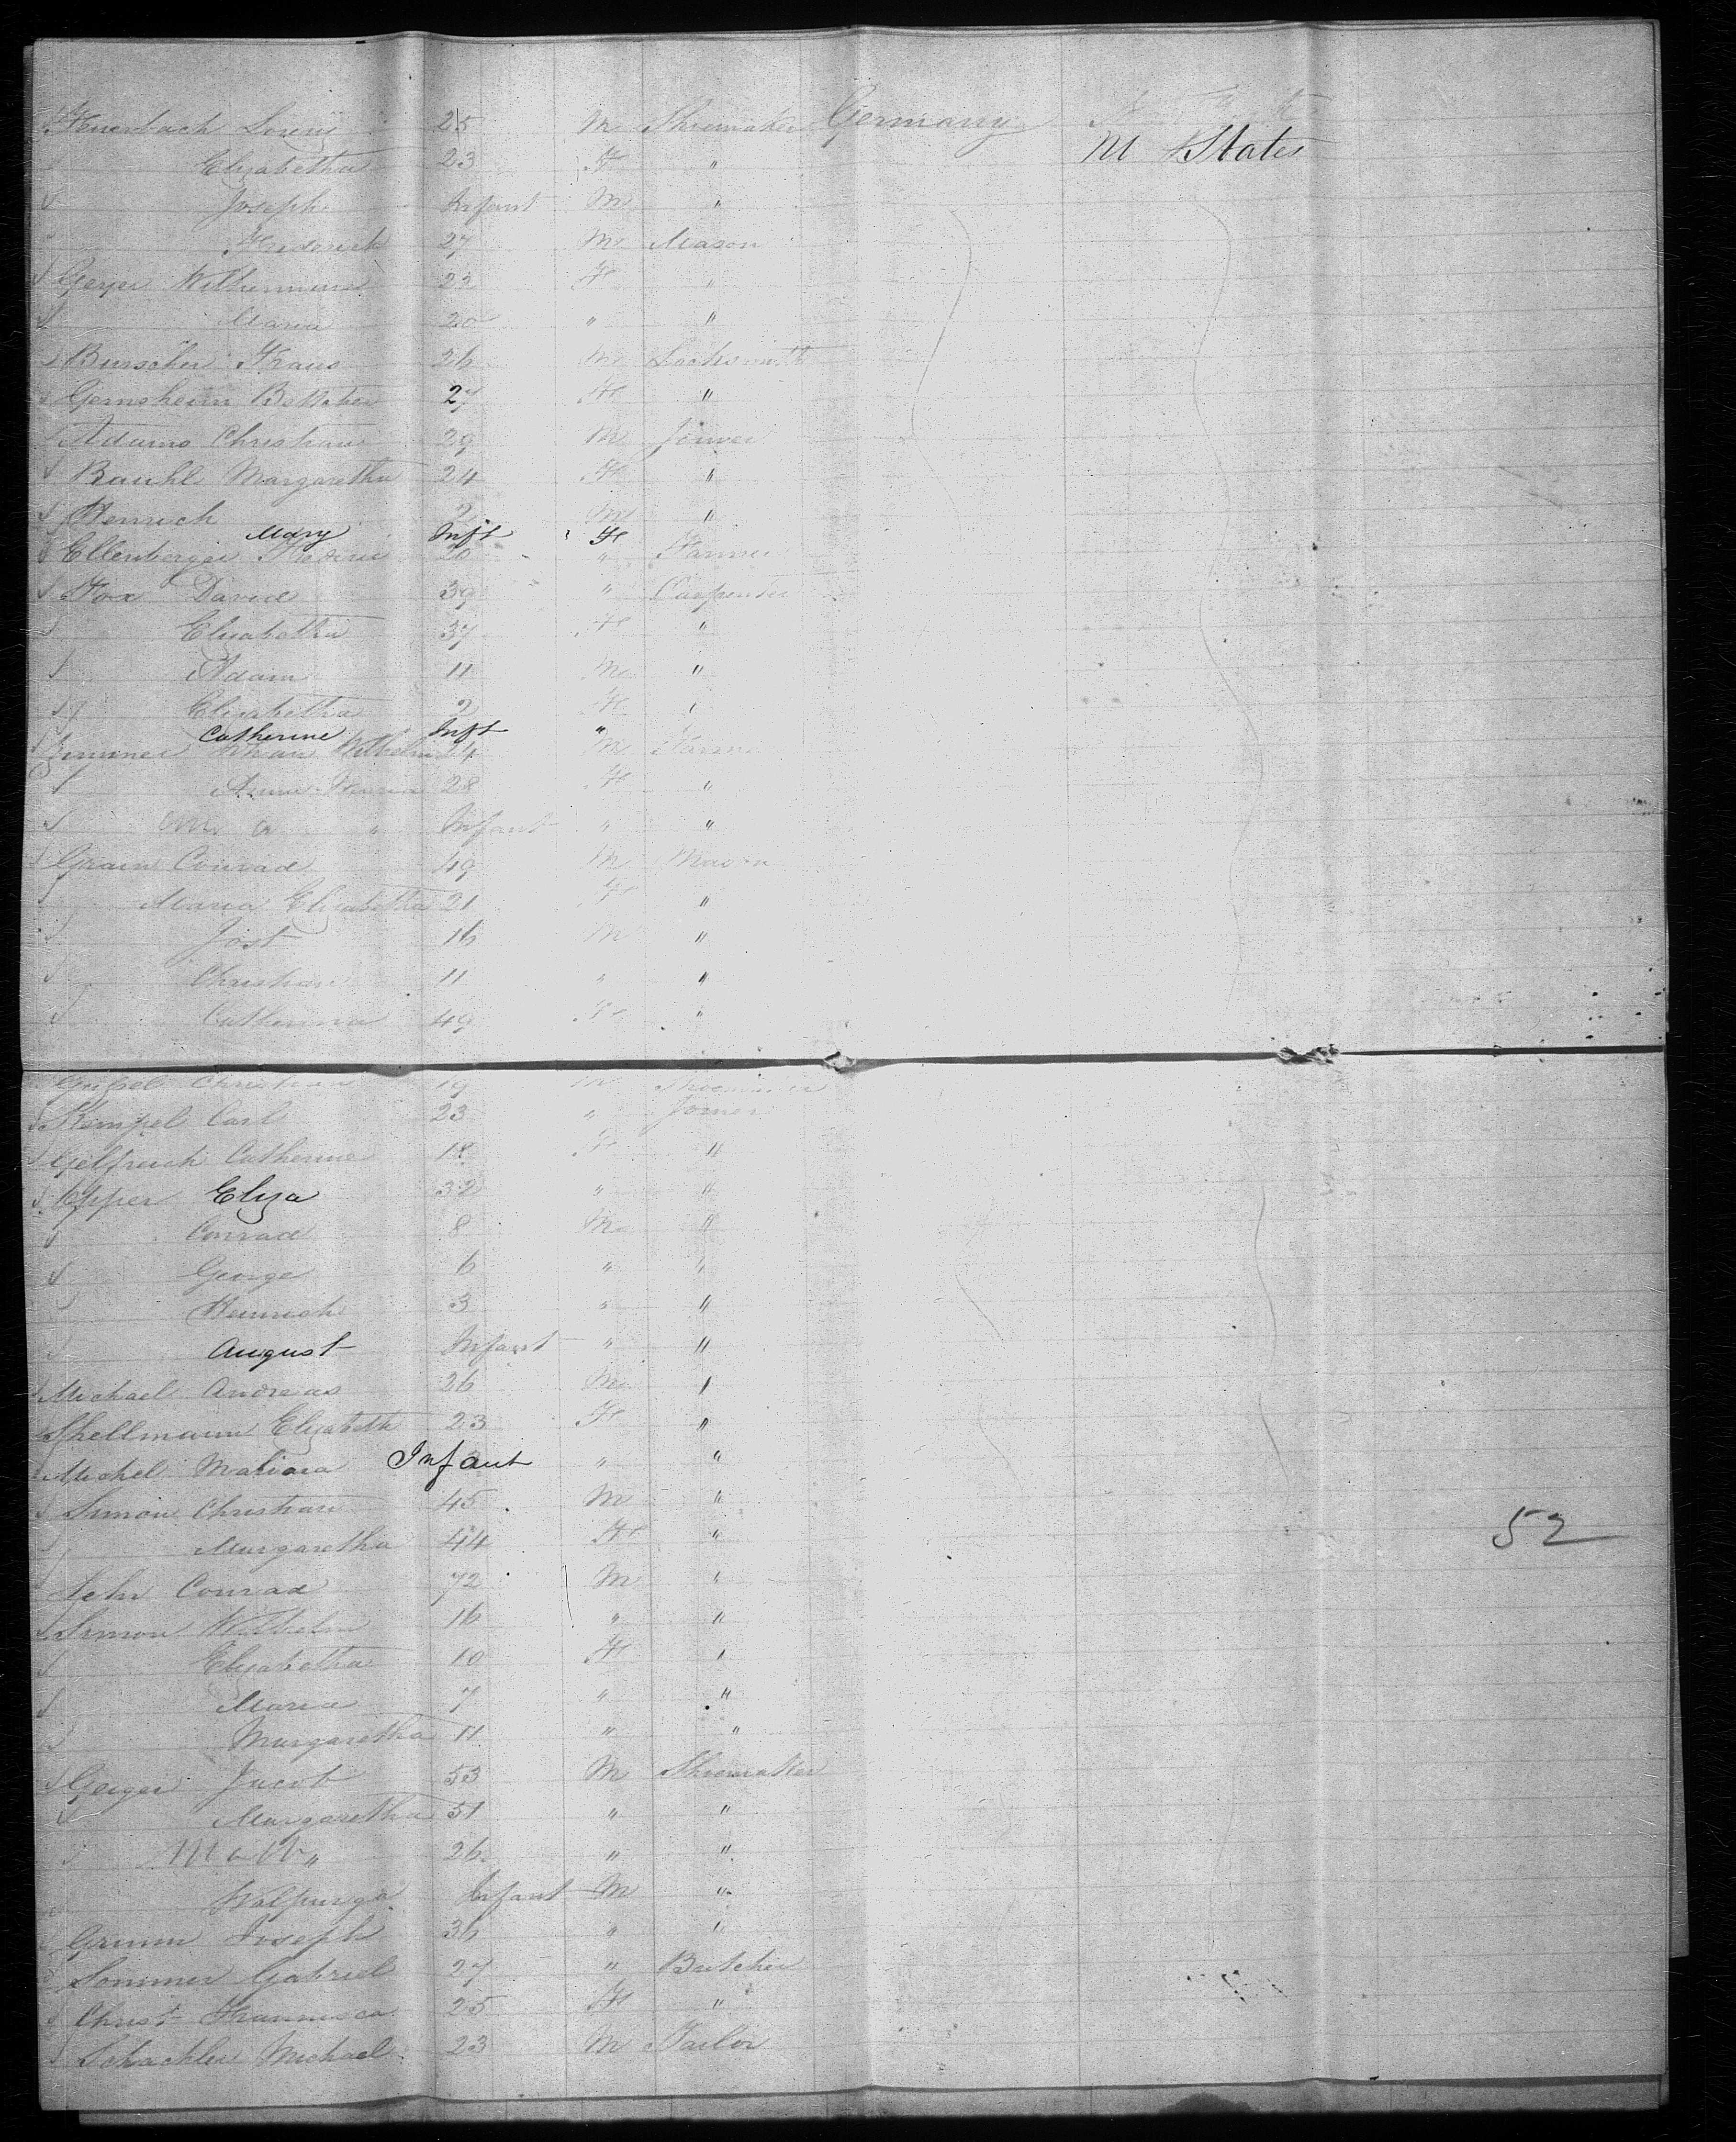 Feuerbach 25 M Shoemaker Germany
Elizabetha 23 F " U States
Joseph Infant M "
Frederich 27 M Mason
Geyer Wilhermina 23 F "
Maria 20 " "
Burscher Franz 26 M Locksmith
Gernsheim 27 F "
Adams Christian 29 M Joiner
Bauhl Margaretha 24 F "
Henrich 2 M "
Mary Inft F
Ellenberger 20 " Farmer
Fox David 39 " Carpenter
Elizabetha 37 F "
Adam 11 M "
Elizabetha 2 F "
Catherine Inft "
Johan Wilhelm 24 M Farmer
28 F "
" Infant " "
Conrad 49 M Mason
Maria Elizabetha 21 F "
Jost 16 M "
Christian 11 " "
Catherina 49 F "
Christian 19 M Shoemaker
Kempel Carl 23 " Joiner
Gelfreich Catherine 18 F "
Epper Eliza 32 " "
Conrad 8 M "
George 6 " "
Heinrich 3 " "
August Infant " "
Michael Andreas 26 M "
Shellmann Elizabeth 23 F "
Michel Infant " "
Simon Christian 45 M "
Margaretha 44 F " 52
Conrad 72 M "
Simon Wilhelm 16 " "
Elizabetha 10 F "
Maria 7 " "
Margaretha 11 " "
Geiger Jacob 53 M Shoemaker
Margaretha 51 " "
" 26 " "
Walpurga Infant M "
Grimm Joseph 36 " "
Sommer Gabriel 27 " Butcher
Christ 25 F "
Schachler Michael 23 M Tailor